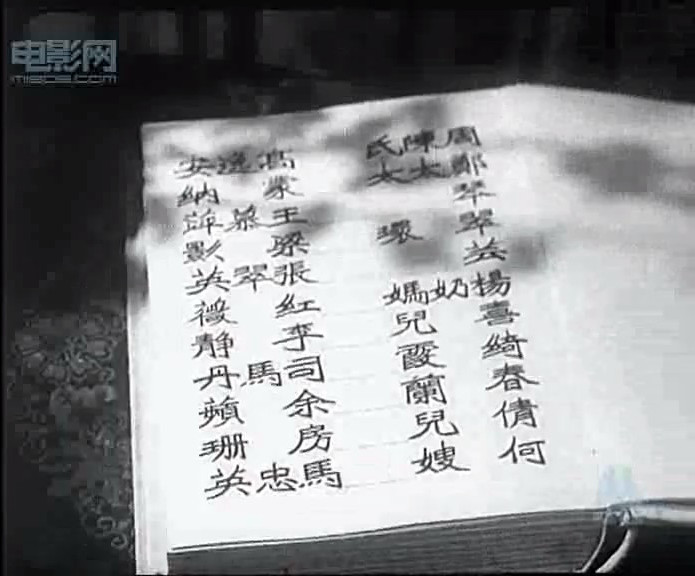 电影网
m1905.com
周陳氏 高逸安
鄭太太 蒙納
琴 王 萍
翠環 梁影
芸 張翠英
楊奶媽 紅薇
喜兒 李靜
綺霞 司馬丹
春蘭 余蘋
倩兒 房珊
何嫂 馬忠英